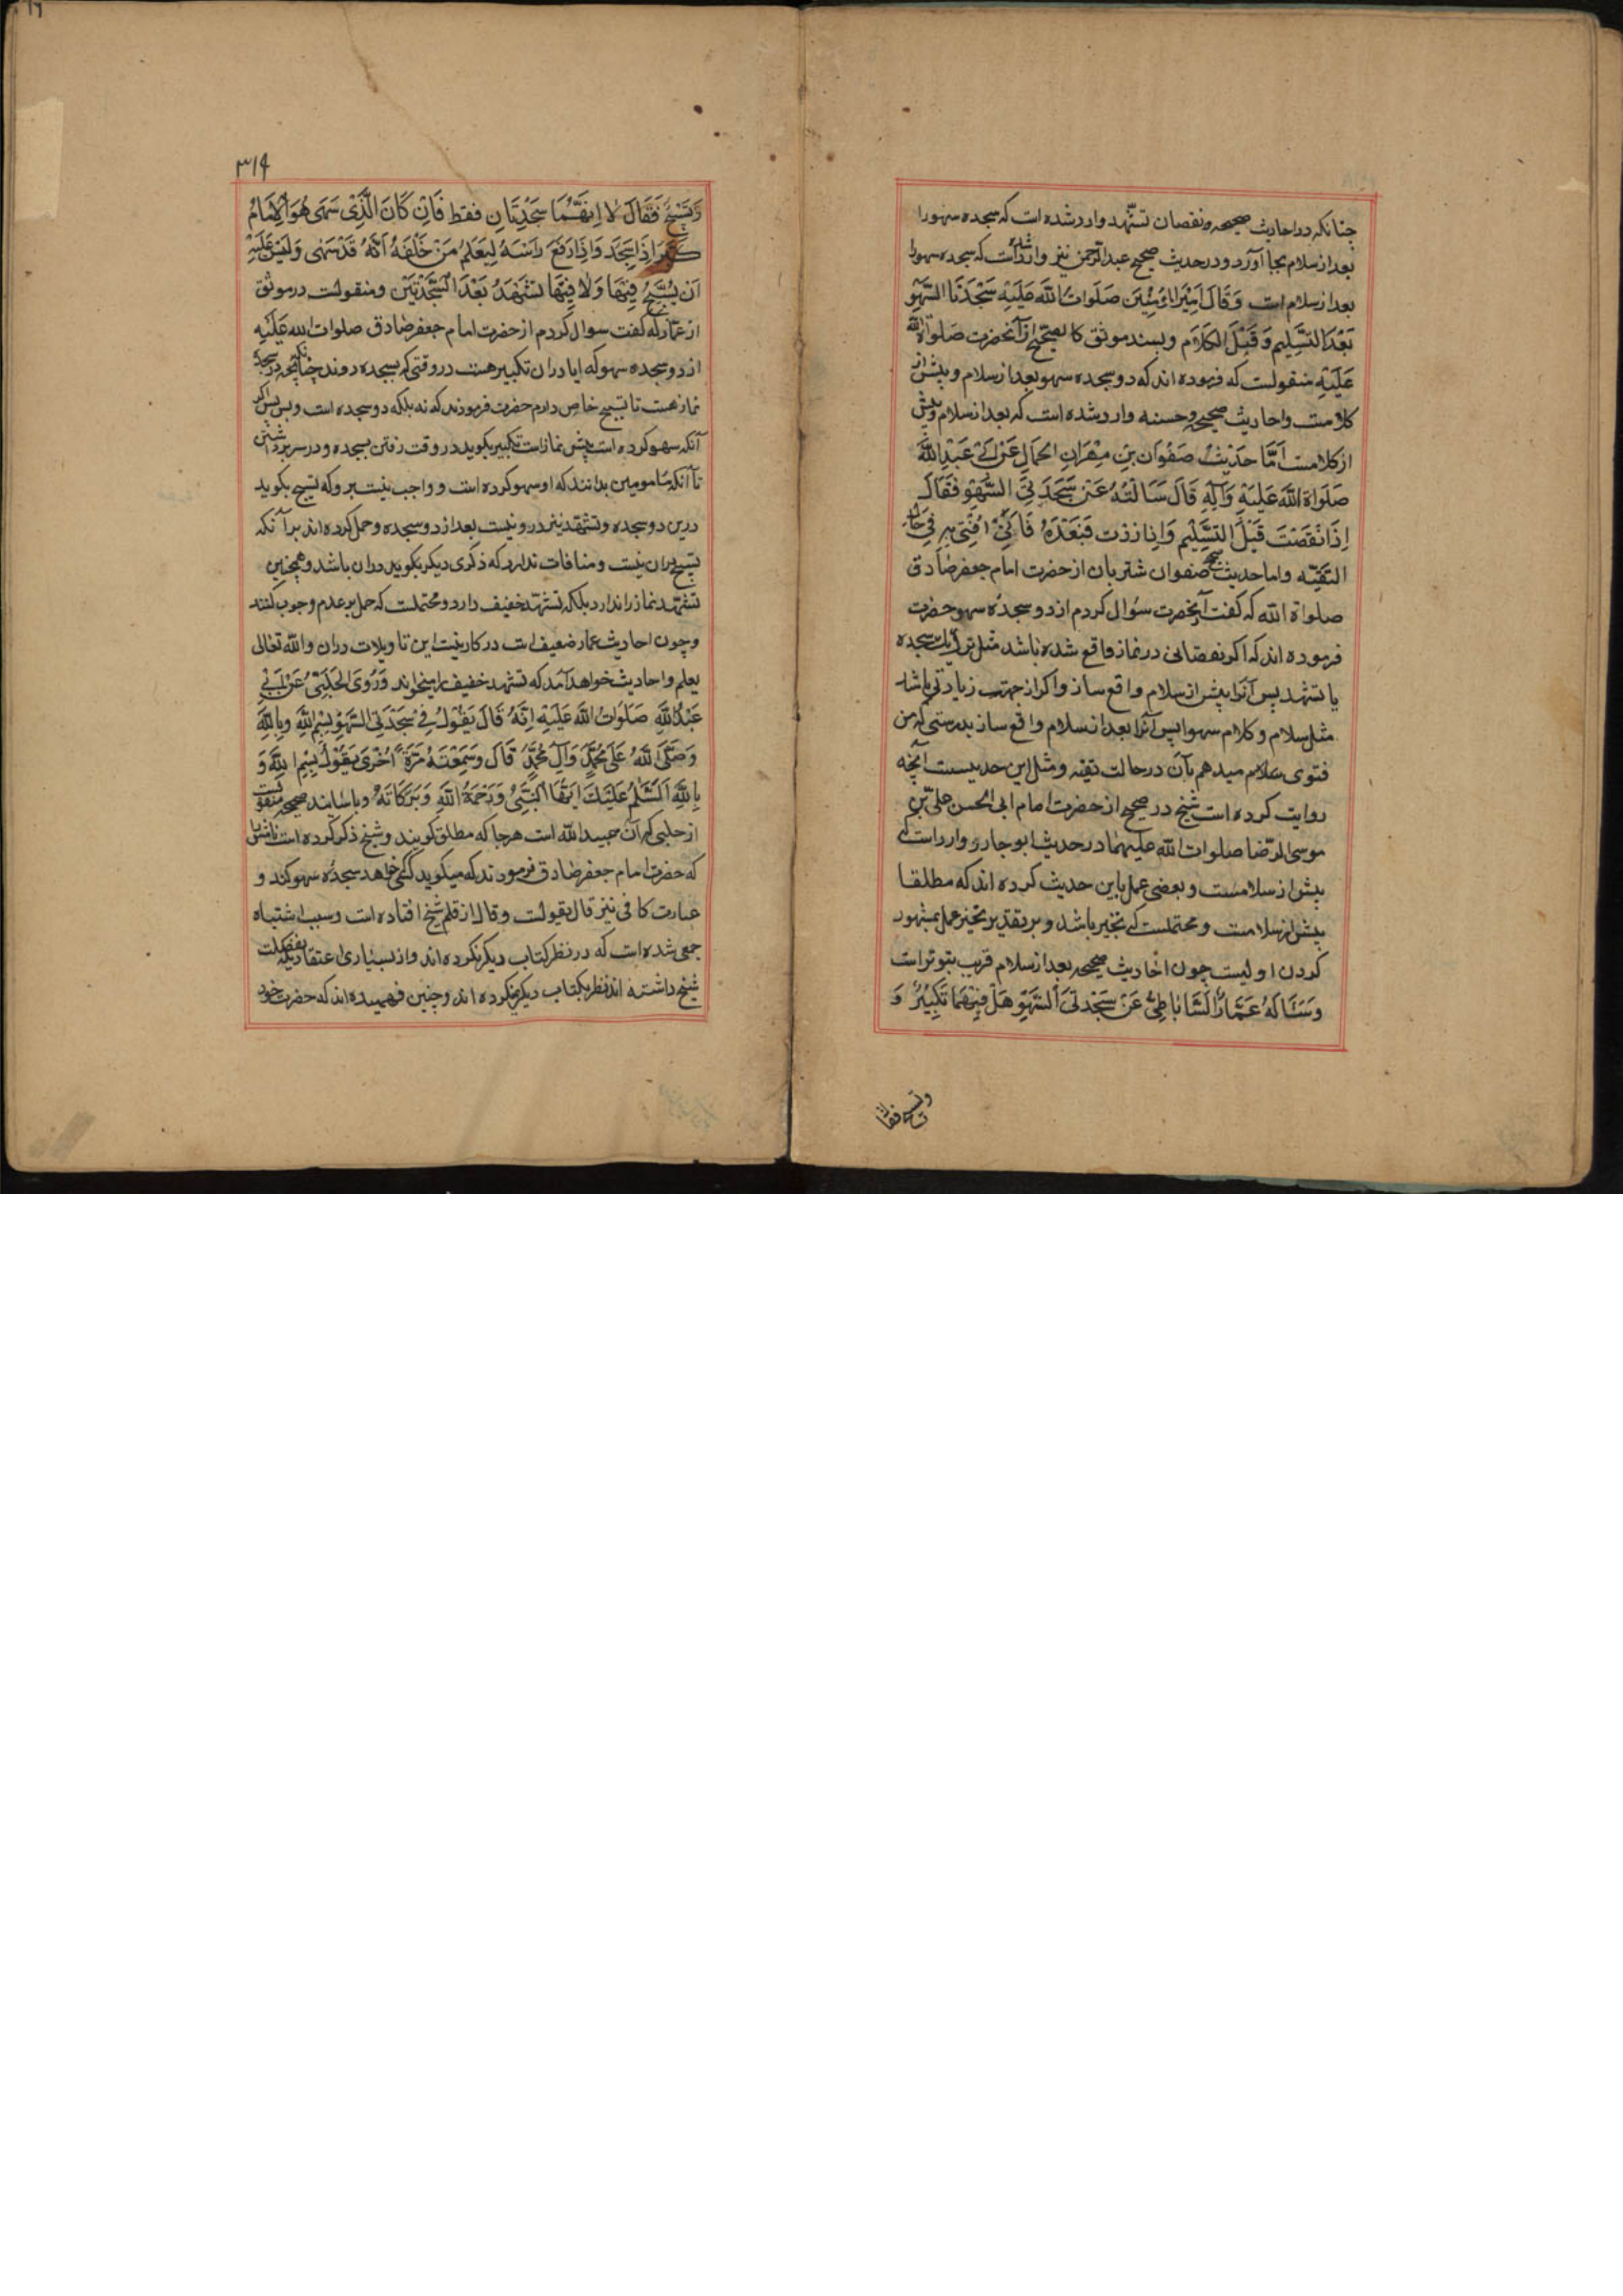 چنانکه در احادیث صحیحه و نقصان تشهد وارد شده است که سجده سهو را
بعد از سلام بجا آورد و در حدیث صحیح عبدالرحمن نیز وارد شده است که سجده سهو را
بعد از سلام است وَقَالَ اَمِیْرُ الْمُؤمِنِیْنَ صَلَوَاتُ اللهِ عَلَیْهِ سَجْدَتَا السَّهْوِ
بَعْدَ التَّسْلِیمِ وَقَبْلَ الْکَلَامِ و بسند موثق کالصحیح از آنحضرت صلوات الله
عَلَیْهِ منقولست که فرموده اند که دو سجده سهو بعد از سلام و پیش از
کلامست و احادیث صحیحه و حسنه وارد شده است که بعد از سلام و پیش
از کلامست اَمَّا حَدِیْثُ صَفْوَان بْنِ مِهْرَانِ الْجَمَالِ عَنْ اَبِیْ عَبْدِ اللهِ
صَلَوَاة اللهِ عَلَیْهِ وَآلِهِ قَالَ سَاَلْتُهُ عَنْ سَجْدَتَیِ السَّهْوِ فَقَالَ
اِذَا نَقَصْتَ قَبْلَ التَّسْلِیْمِ وَاِذَا زِدْتَ فَبَعْدَهُ فَاِنِّیْ اُفْتِیْ بِهِ فِیْ حَالِ
التَّقِیَّه و اما حدیث صحیح صفوان شتربان از حضرت امام جعفر صادق
صلواة الله که گفت از آنحضرت سؤال کردم از دو سجدۀ سهو حضرت
فرموده اند که اگر نقصانی در نماز واقع شده باشد مثل ترک یک سجده
یا تشهد پس آنرا پیش از سلام واقع ساز و اگر از جهت زیادتی باشد
مثل سلام و کلام سهوا پس آنرا بعد از سلام واقع ساز بدرستی که من
فتوی میدهم بآن در حالت تقیه و مثل این حدیست آنچه
روایت کرده است شیخ در صحیح از حضرت امام ابی الحسن علی بن
موسی الرضا صلوات الله علیهما در حدیث ابو جارود وارد است که
پیش از سلامست و بعضی عمل باین حدیث کرده اند که مطلقا
پیش از سلامست و محتملست که تخییر باشد و بر تقدیر تخییر عمل بمشهور
کردن اولیست چون احادیث صحیحه بعد از سلام قریب بتوتر است
وَسَاَلَهُ عَمَّارُ السَّابَاطِیُّ عَنْ سَجْدَتَیِ السَّهْوِ هَلْ فِیْهِمَا تَکْبِیْرٌ وَ
۳۱۴
وَتَسْبِیْحٌ فَقَالَ لَا اِنَّهُمَا سَجْدَتَانِ فَقَط فَاِنْ کَانَ الَّذِیْ سَهٰی هُوَ الْاِمَامُ
کَبَّرَ اِذَا سَجَدَ وَاِذَا رَفَعَ رَاْسَهُ لِیَعْلَمَ مَنْ خَلْفَهُ اَنَّهُ قَدْ سَهٰی وَلَیْسَ عَلَیْهِ
اَنْ یُسَبِّحَ فِیْهَا وَلَا فِیْهَا تَشَهُّدٌ بَعْدَ السَّجْدَتَیْنِ و منقولست در موثق
از عمار که گفت سوال کردم از حضرت امام جعفر صادق صلوات الله عَلَیْهِ
از دو سجده سهو که ایا دران تکبیر هست در وقتی که بسجده روند چنانچه در سجدۀ
نماز هست تا تسبیح خاص دارم حضرت فرمودند که نه بلکه دو سجده است و بس پس اگر
آنکه سهو کرده است پیش نماز است تکبیر بگوید در وقت رفتن بسجده و در سر برداشتن
تا آنکه مامومین بدانند که او سهو کرده است و واجب نیست برو که تسبیح بگوید
درین دو سجده و تشهد نیز درو نیست بعد از دو سجده و حمل کرده اند بر آنکه
تسبیح دران نیست و منافات ندارد که ذکری دیگر بگوید دران باشد و همچنین
تشهد نماز را ندارد بلکه تشهد خفیف دارد و محتملست که حمل بر عدم وجوب کنند
و چون احادیث عمار ضعیف است در کار نیست این تاویلات دران و الله تعالی
یعلم و احادیث خواهد آمد که تشهد خفیف را میخواند وَرَوَی الْحَلَبِیُّ عَنْ اَبِیْ
عَبْدِ اللهِ صَلَوَاتُ اللهِ عَلَیْهِ اِنَّهُ قَالَ یَقُوْلُ فِیْ سَجْدَتَیِ السَّهْوِ بِسْمِ اللهِ وَبِاللهِ
وَصَلَّی اللهُ عَلٰی مُحَمَّدٍ وَآلِ مُحَمَّدٍ قَالَ وَسَمِعْتُهُ مَرَّةً اُخْرٰی یَقُوْلُ بِسْمِ اللهِ وَ
بِاللهِ اَلسَّلٰمُ عَلَیْكَ اَیُّهَا النَّبِیُّ وَرَحْمَةُ اللهِ وَبَرَکَاتُهُ و باسانید صحیحه منقولست
از حلبی که آن عبید الله است هرجا که مطلق گویند و شیخ ذکر کرده است
که حضرت امام جعفر صادق فرمودند که میگوید کسی که خواهد سجدۀ سهو کند و
عبارت کافی نیز قال یقولست و قال از قلم شیخ افتاده است و سبب اشتباه
جمعی شده است که در نظر کتاب دیگر نکرده اند و از بسیاری اعتقاد که
شیخ داشته اند نظر بکتاب دیگر نکرده اند و چنین فهمیده اند که حضرت خود